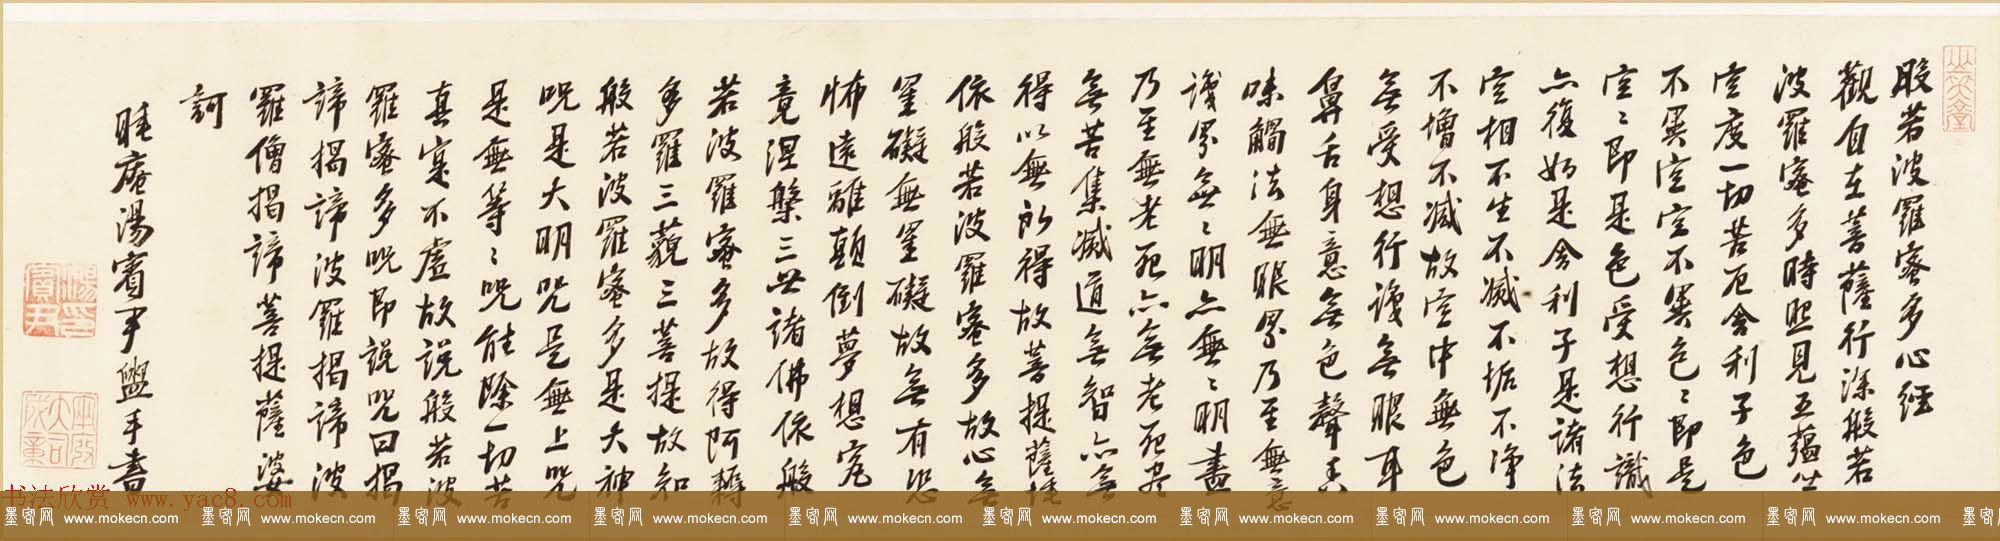 般若波羅蜜多心經
觀自在菩薩行深般若
波羅蜜多時照見五蘊皆
空度一切苦厄舍利子色
不異空空不異色色〻即是
空〻即是色受想行識
亦復如是舍利子是諸法
空相不生不滅不垢不淨
不增不減故空中無色
無受想行識無眼耳
鼻舌身意無色聲香
味觸法無眼界乃至無意
識界無〻明亦無〻明盡
乃至無老死亦無老死盡
無苦集滅道無智亦無
得以無所得故菩提薩埵
依般若波羅蜜多故心無
罣礙無罣礙故無有恐
怖遠離顛倒夢想究
竟涅槃三世諸佛依般
若波羅蜜多故得阿耨
多羅三藐三菩提故知
般若波羅蜜多是大神
咒是大明咒是無上咒
是無等〻咒能除一切苦
真實不虛故說般若波
羅蜜多咒即說咒曰揭
諦揭諦波羅揭諦波
羅僧揭諦菩提薩婆
訶
睡庵湯賓尹盥手書
湯賓尹印
书法欣赏 www.yac8.com
墨客网 www.mokecn.com 墨客网 www.mokecn.com 墨客网 www.mokecn.com 墨客网 www.mokecn.com 墨客网 www.mokecn.com 墨客网 www.mokecn.com 墨客网 www.mokecn.com 墨客网 www.mokecn.com 墨客网 www.mokecn.com 墨客网 www.mokecn.com 墨客网